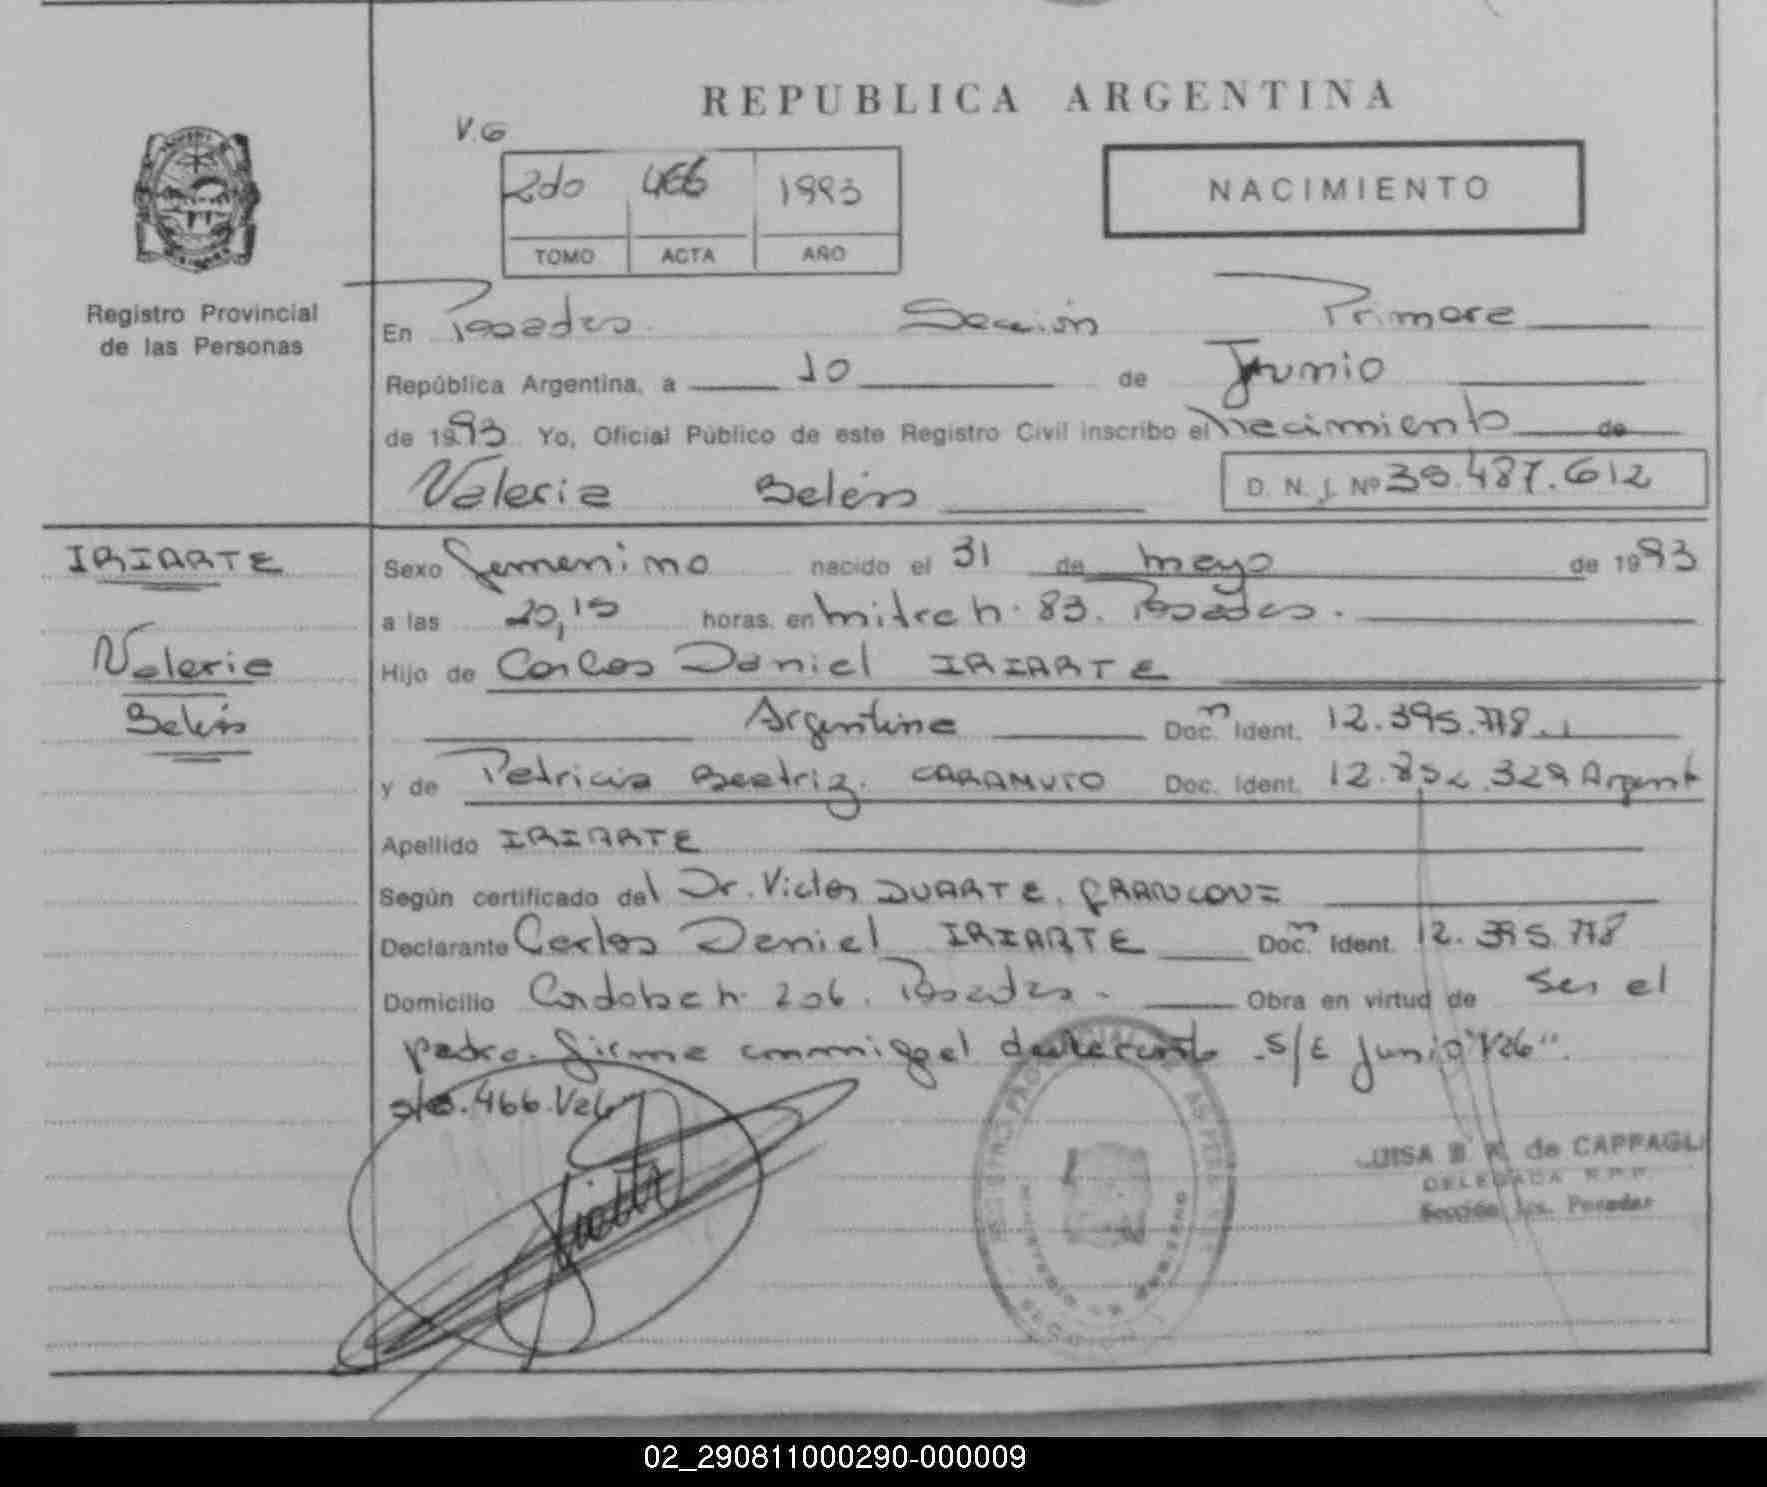 REPUBLICA ARGENTINA
V.G
2do 466 1993
TOMO ACTA AÑO
NACIMIENTO
Registro Provincial
de las Personas
En Posadas Sección Primera
República Argentina, a 10 de Junio
de 1993 Yo, Oficial Público de este Registro Civil inscribo el nacimiento de
Valeria Belén D. N. I. Nº 39.487.612
IRIARTE
Valeria
Belén
Sexo femenino nacido el 31 de mayo de 1993
a las 20,15 horas, en mitre n. 83. Posadas.
Hijo de Carlos Daniel IRIARTE
Argentino Doc. Ident. 12.395.778
y de Patricia Beatriz CARAMUTO Doc. Ident. 12.852.329 Argent
Apellido IRIARTE
Según certificado del Dr. Victor DUARTE
Declarante Carlos Daniel IRIARTE Doc. Ident. 12.395.778
Domicilio Cordoba n. 206. Posadas - Obra en virtud de ser el
padre. firma conmigo el declarante S/E Junio "Vº6".
466.
de CAPPAGLI
DELEGADA R.P.P.
Sección Posadas
02_290811000290-000009